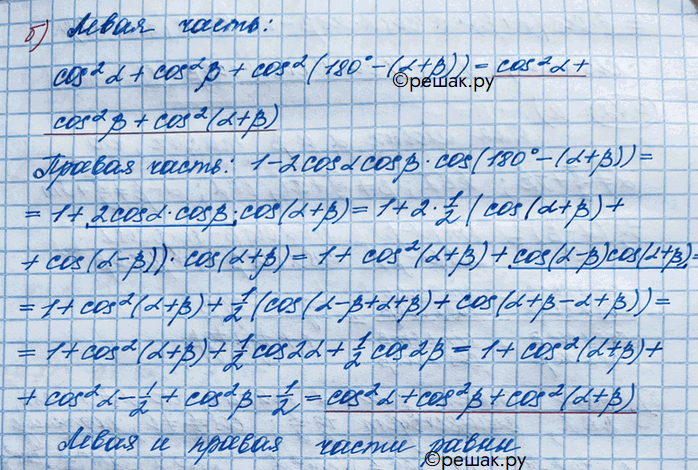 б) Левая часть:
cos²α + cos²β + cos²(180° − (α+β)) = cos²α +
©решак.ру
cos²β + cos²(α+β)
Правая часть: 1 − 2cosα cosβ · cos(180° − (α+β)) =
= 1 + 2cosα · cosβ · cos(α+β) = 1 + 2 · 1/2 (cos(α+β) +
+ cos(α−β)) · cos(α+β) = 1 + cos²(α+β) + cos(α−β)cos(α+β) =
= 1 + cos²(α+β) + 1/2 (cos(α−β+α+β) + cos(α+β−α+β)) =
= 1 + cos²(α+β) + 1/2 cos2α + 1/2 cos2β = 1 + cos²(α+β) +
+ cos²α − 1/2 + cos²β − 1/2 = cos²α + cos²β + cos²(α+β)
Левая и правая части равны
©решак.ру